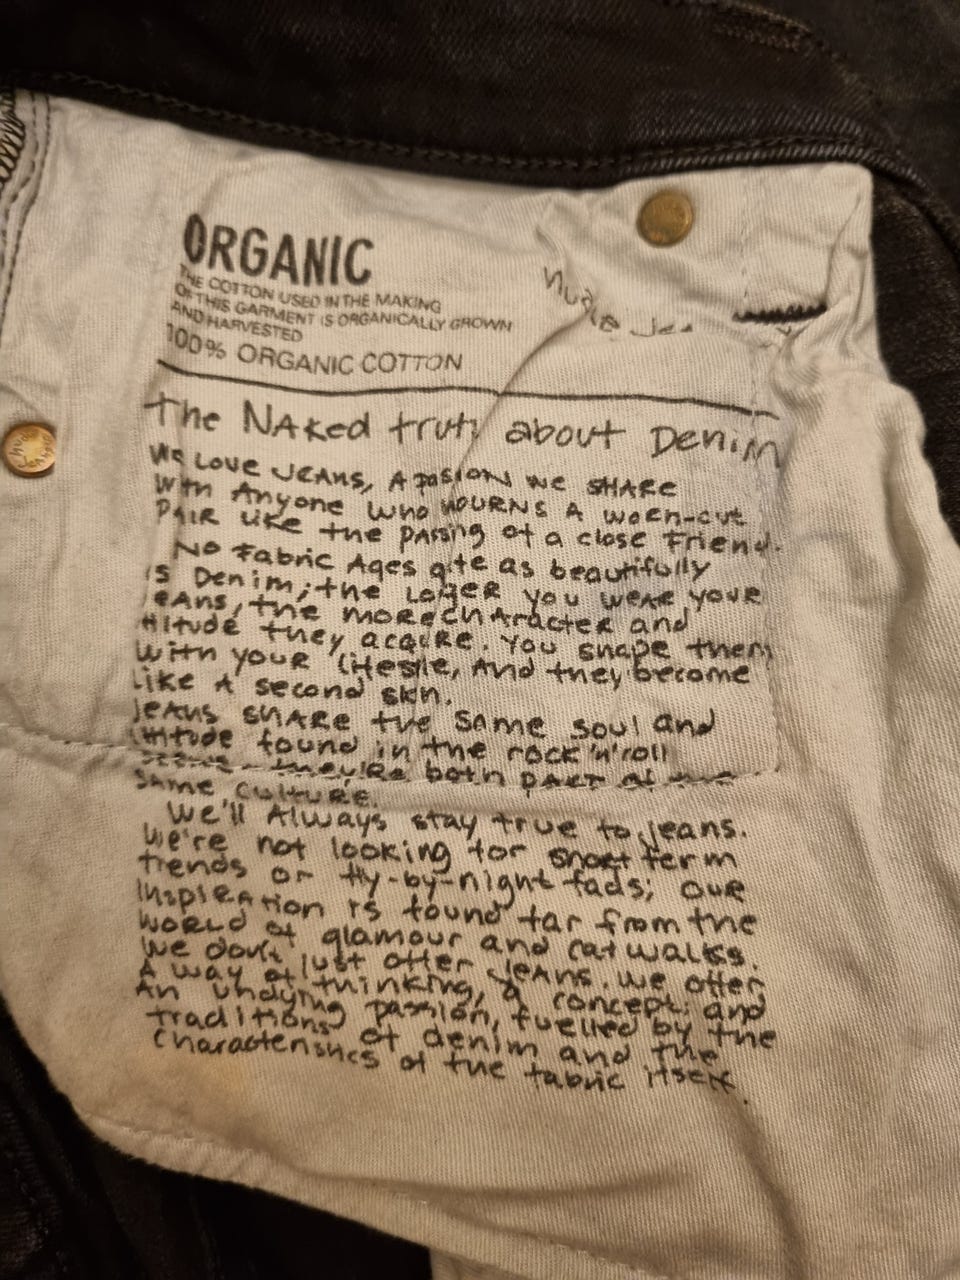 ORGANIC
THE COTTON USED IN THE MAKING
OF THIS GARMENT IS ORGANICALLY GROWN
AND HARVESTED
100% ORGANIC COTTON
The Naked truth about Denim
We Love Jeans, A passion we share
with Anyone who mourns a worn-out
pair like the passing of a close friend.
No fabric ages quite as beautifully
as Denim; the longer you wear your
jeans, the more character and
attitude they acquire. You shape them
with your lifestyle, and they become
like a second skin.
Jeans share the same soul and
attitude found in the rock 'n' roll
they're both part of the
same culture.
We'll Always stay true to jeans.
We're not looking for short term
trends or fly-by-night fads; our
inspiration is found far from the
world of glamour and catwalks.
We don't just offer jeans. We offer
A way of thinking, a concept; and
An undying passion, fuelled by the
traditions of denim and the
characteristics of the fabric itself.